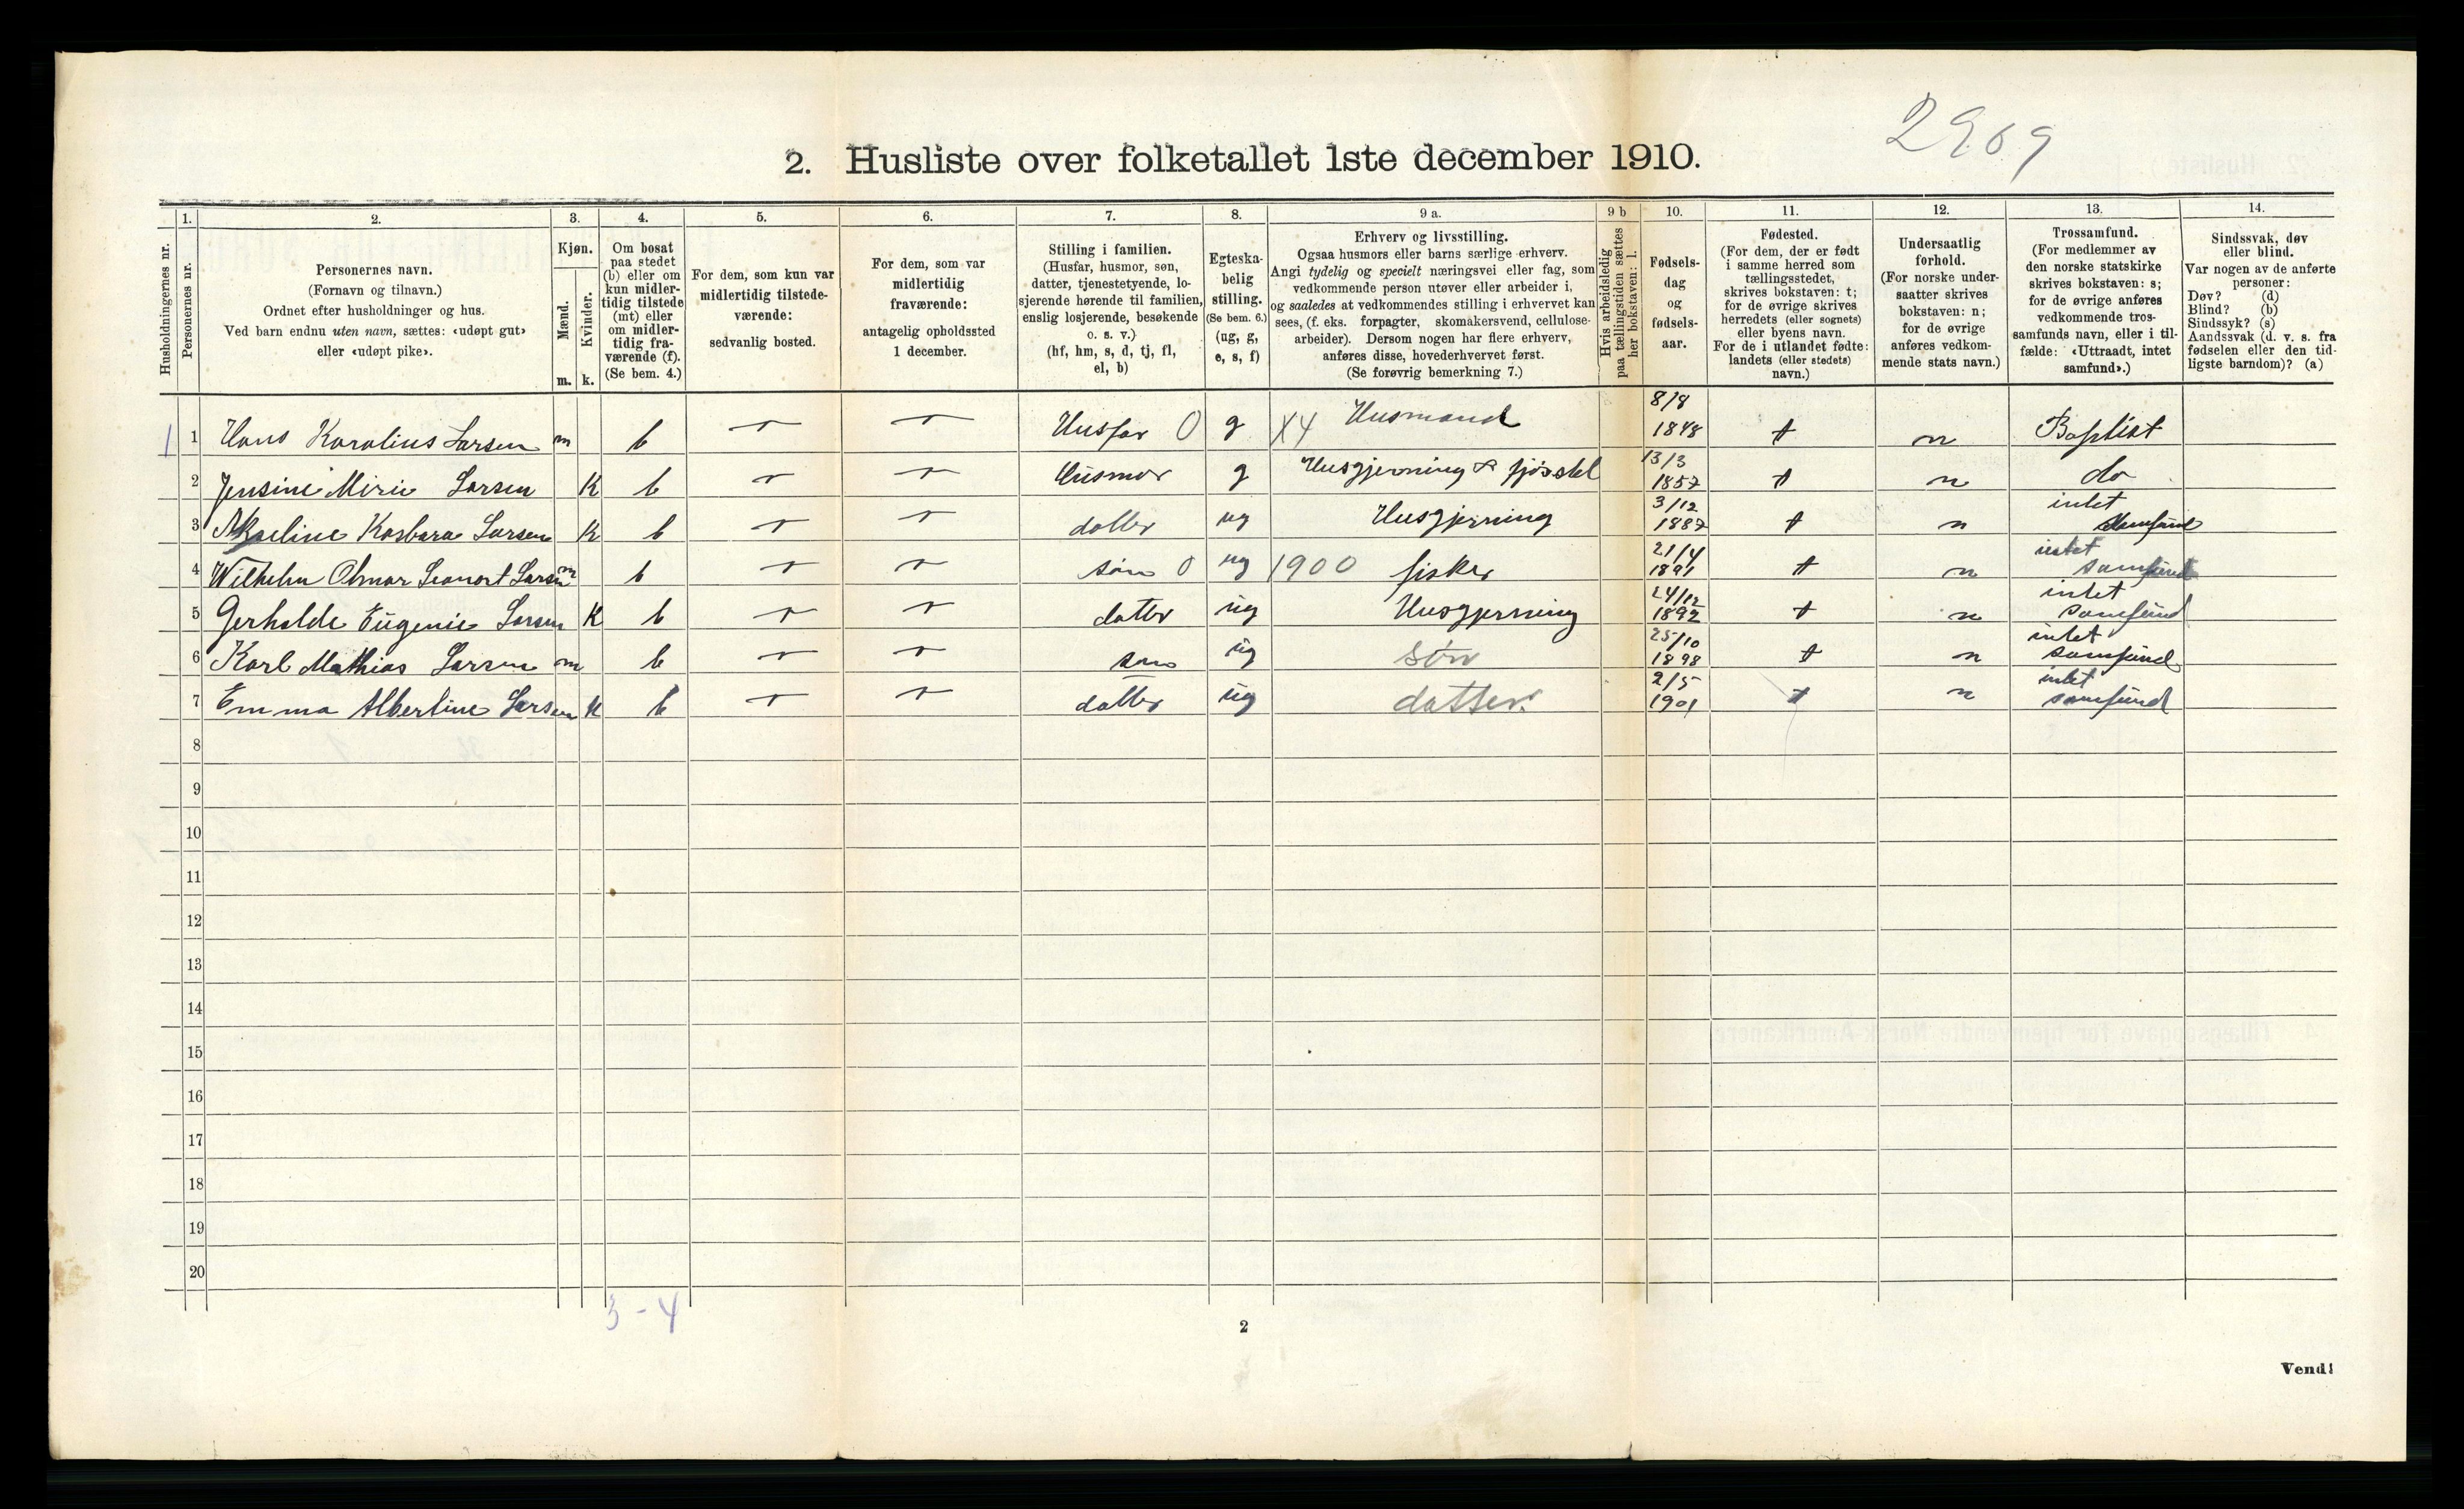 2969
2. Husliste over folketallet 1ste december 1910.
Husholdningernes nr.
1.
Personernes nr.
2.
Personernes navn.
(Fornavn og tilnavn.)
Ordnet efter husholdninger og hus.
Ved barn endnu uten navn, sættes: «udøpt gut»
eller «udøpt pike».
3.
Kjøn.
Mænd.
Kvinder.
m. k.
4.
Om bosat
paa stedet
(b) eller om
kun midler-
tidig tilstede
(mt) eller
om midler-
tidig fra-
værende (f).
(Se bem. 4.)
5.
For dem, som kun var
midlertidig tilstede-
værende:
sedvanlig bosted.
6.
For dem, som var
midlertidig
fraværende:
antagelig opholdssted
1 december.
7.
Stilling i familien.
(Husfar, husmor, søn,
datter, tjenestetyende, lo-
sjerende hørende til familien,
enslig losjerende, besøkende
o. s. v.)
(hf, hm, s, d, tj, fl,
el, b)
8.
Egteska-
belig
stilling.
(Se bem. 6.)
(ug, g,
e, s, f)
9 a.
Erhverv og livsstilling.
Ogsaa husmors eller barns særlige erhverv.
Angi tydelig og specielt næringsvei eller fag, som
vedkommende person utøver eller arbeider i,
og saaledes at vedkommendes stilling i erhvervet kan
sees, (f. eks. forpagter, skomakersvend, cellulose-
arbeider). Dersom nogen har flere erhverv,
anføres disse, hovederhvervet først.
(Se forøvrig bemerkning 7.)
9 b
Hvis arbeidsledig
paa tællingstiden sættes
her bokstaven: l.
10.
Fødsels-
dag
og
fødsels-
aar.
11.
Fødested.
(For dem, der er født
i samme herred som
tællingsstedet,
skrives bokstaven: t;
for de øvrige skrives
herredets (eller sognets)
eller byens navn.
For de i utlandet fødte:
landets (eller stedets)
navn.)
12.
Undersaatlig
forhold.
(For norske under-
saatter skrives
bokstaven: n;
for de øvrige
anføres vedkom-
mende stats navn.)
13.
Trossamfund.
(For medlemmer av
den norske statskirke
skrives bokstaven: s;
for de øvrige anføres
vedkommende tros-
samfunds navn, eller i til-
fælde: «Uttraadt, intet
samfund».)
14.
Sindssvak, døv
eller blind.
Var nogen av de anførte
personer:
Døv? (d)
Blind? (b)
Sindssyk? (s)
Aandssvak (d. v. s. fra
fødselen eller den tid-
ligste barndom)? (a)
1 1 Hans Karolius Larsen m b Husfar 0 g X4 Husmand 8/8 1848 t n Baptist
2 Jensine Mirie Larsen K b Husmor g Husgjerning & fjøsstel 13/3 1857 t n do
3 Kasbara Larsen K b datter ug Husgjerning 3/12 1887 t n intet samfund
4 Wilhelm Larsen m b søn 0 ug 1900 fisker 21/4 1891 t n intet samfund
5 Gerhalde Eugenie Larsen K b datter ug Husgjerning 24/12 1892 t n intet samfund
6 Karl Mathias Larsen m b søn ug søn 25/10 1898 t n intet samfund
7 Emma Albertine Larsen K b datter ug datter. 2/5 1901 t n intet samfund
8
9
10
11
12
13
14
15
16
17
18
19
20
3-4
2
Vend!